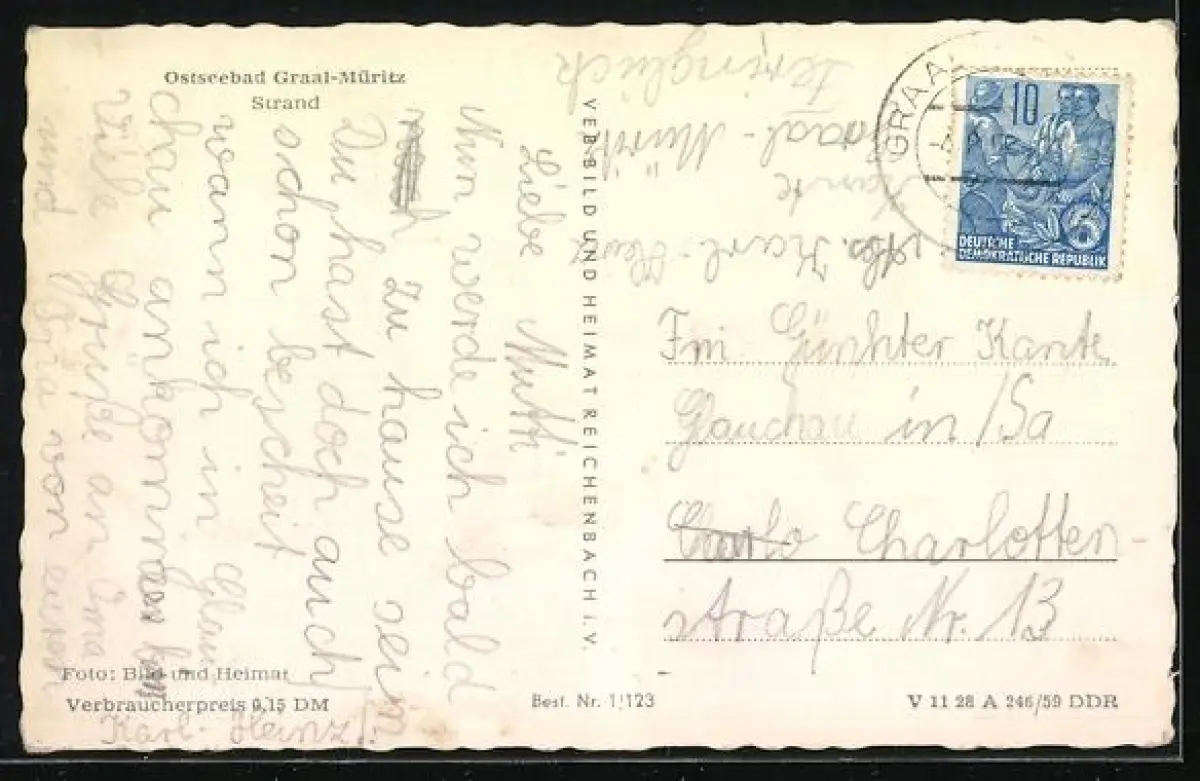 Ostseebad Graal-Müritz
Strand
Liebe Mutti
Nun werde ich bald
zu hause sein
Du hast doch auch
schon bescheit
wann ich in Glau
chau ankomme
Viele Grüße an Oma
und von euren
Karl-Heinz!
Foto: Bild und Heimat
Verbraucherpreis 0,15 DM
VEB BILD UND HEIMAT REICHENBACH I. V.
Best. Nr. 1/123
V 11 28 A 246/59 DDR
Abs. Karl-Heinz
Kante
Graal-Müritz
GRAAL
10
5
DEUTSCHE
DEMOKRATISCHE REPUBLIK
Günhter Kante
Glauchau in /Sa
Charlotten-
straße Nr. 13